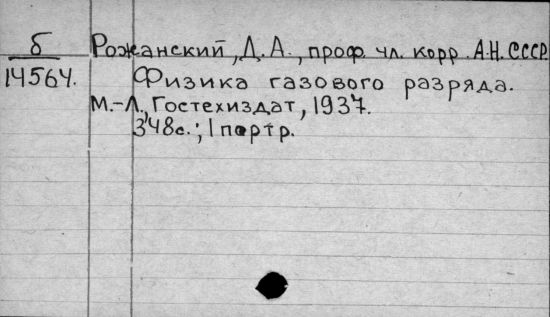 б Рожанский, Д. А., проф. чл. корр. А.Н. СССР
14564. Физика газового разряда.
М.-Л., Гостехиздат, 1937.
348с.; 1 портр.